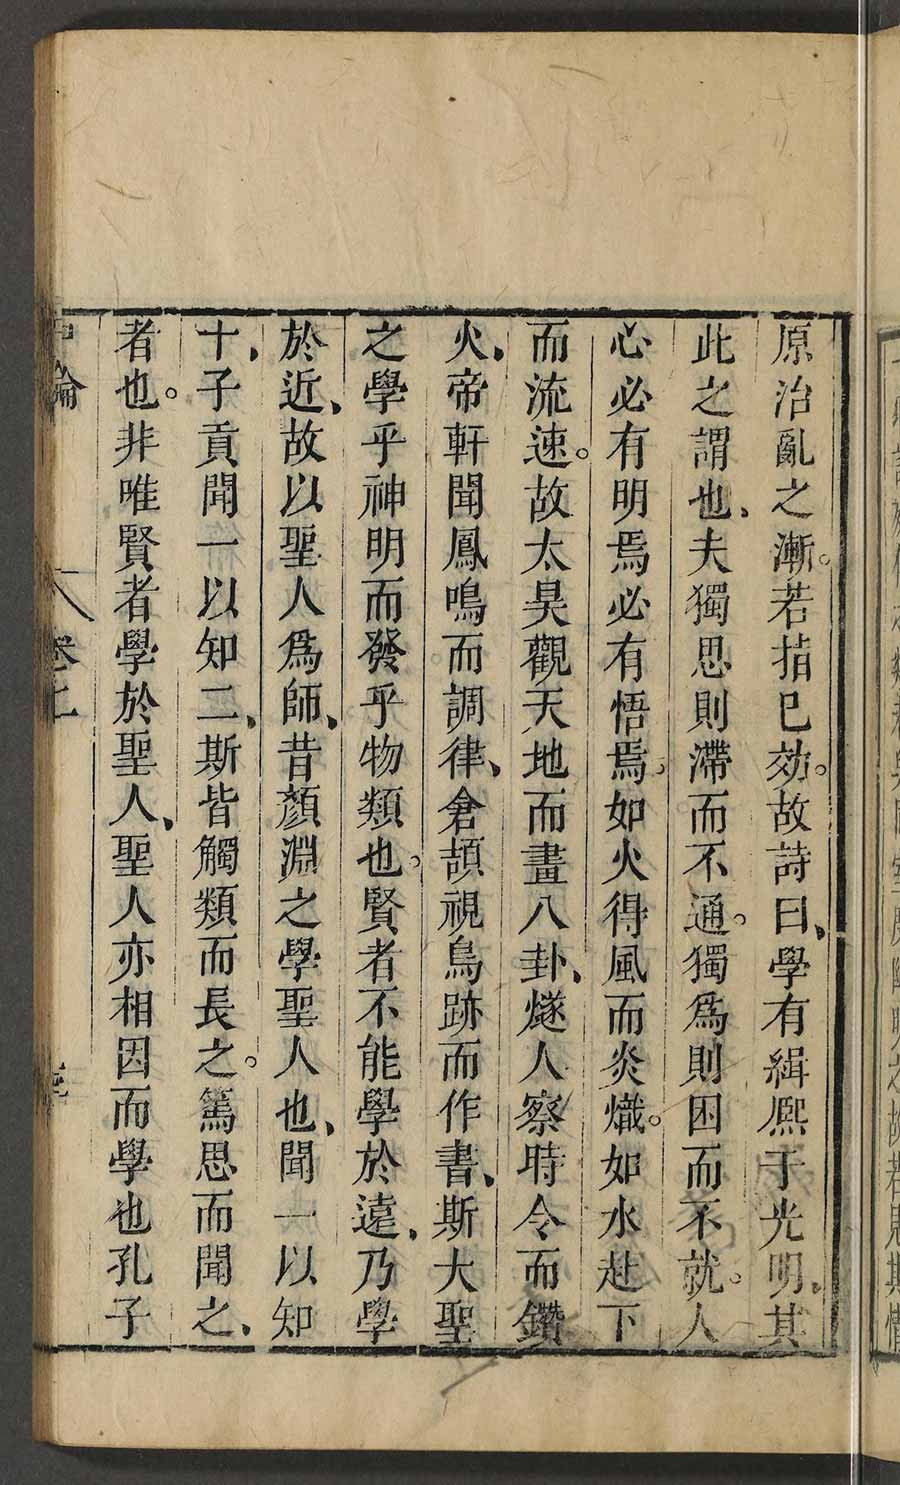 原治亂之漸。若指已効。故詩曰、學有緝熈于光明、其
此之謂也、夫獨思則滯而不通。獨爲則困而不就。人
心必有明焉必有悟焉、如火得風而炎熾。如水赴下
而流速。故太昊觀天地而畫八卦、燧人察時令而鑽
火、帝軒聞鳳鳴而調律、倉頡視鳥跡而作書、斯大聖
之學乎神明而發乎物類也。賢者不能學於遠、乃學
於近、故以聖人爲師、昔顏淵之學聖人也、聞一以知
十、子貢聞一以知二、斯皆觸類而長之。篤思而聞之、
者也。非唯賢者學於聖人、聖人亦相因而學也孔子
中論 卷上